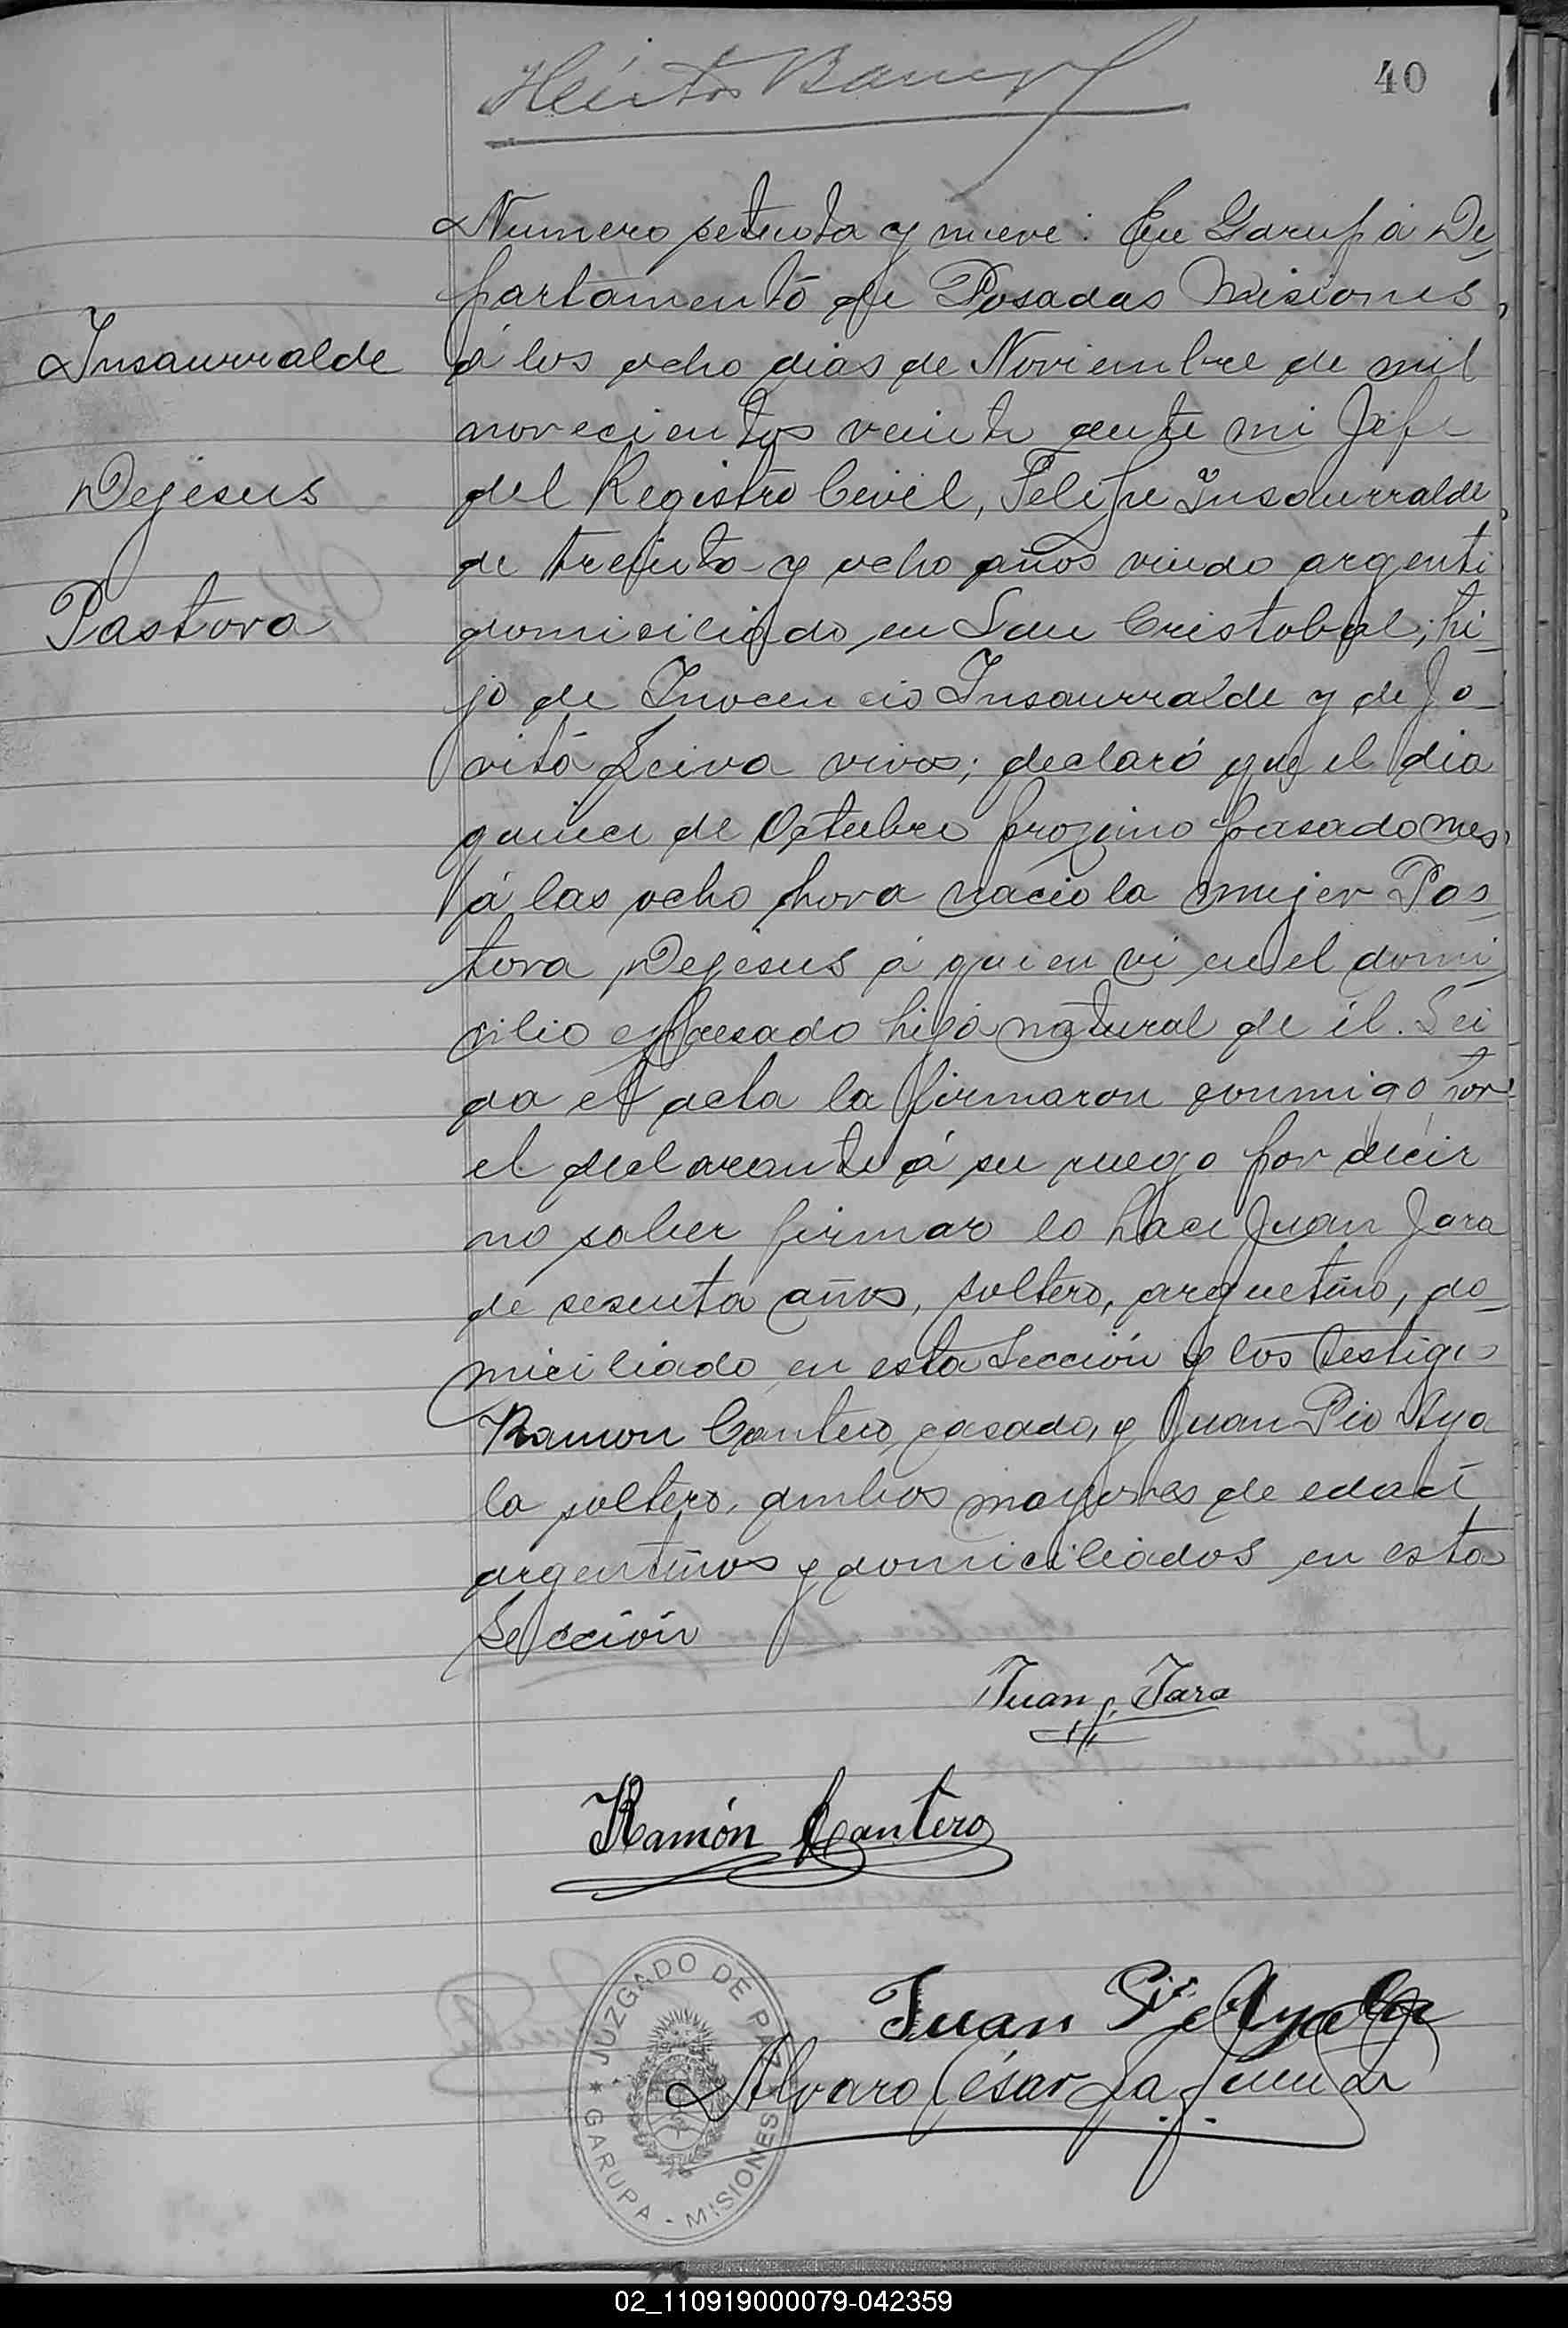 40
Numero setenta y nueve: En Garupá De
partamento de Posadas Misiones,
Insaurralde
á los ocho dias de Noviembre de mil
novecientos veinte ante mi Jefe
Dejesus
del Registro Civil, Felipe Insaurralde,
de treinta y ocho años viudo argenti
Pastora
domiciliado en San Cristobal; hi-
jo de Inocencio Insaurralde y de Jo-
vita Leiva vivos; declaró que el dia
quince de Octubre proximo pasado mes,
á las ocho hora nacio la mujer Pas-
tora Dejesus á quien vi en el domi-
cilio espresado hija natural de él. Lei-
da el acta la firmaron conmigo por
el declarante á su ruego por decir
no saber firmar lo hace Juan Jara
de sesenta años, soltero, argentino, do-
miciliado en esta Sección y los testigos
Ramon Cantero, casado, y Juan Pio Aya
la soltero, ambos mayores de edad
argentinos y domiciliados en esta
Sección
Juan Jara
Ramón Cantero
Juan Pio Ayala
Alvaro César
JUZGADO DE PAZ
GARUPA - MISIONES
02_110919000079-042359